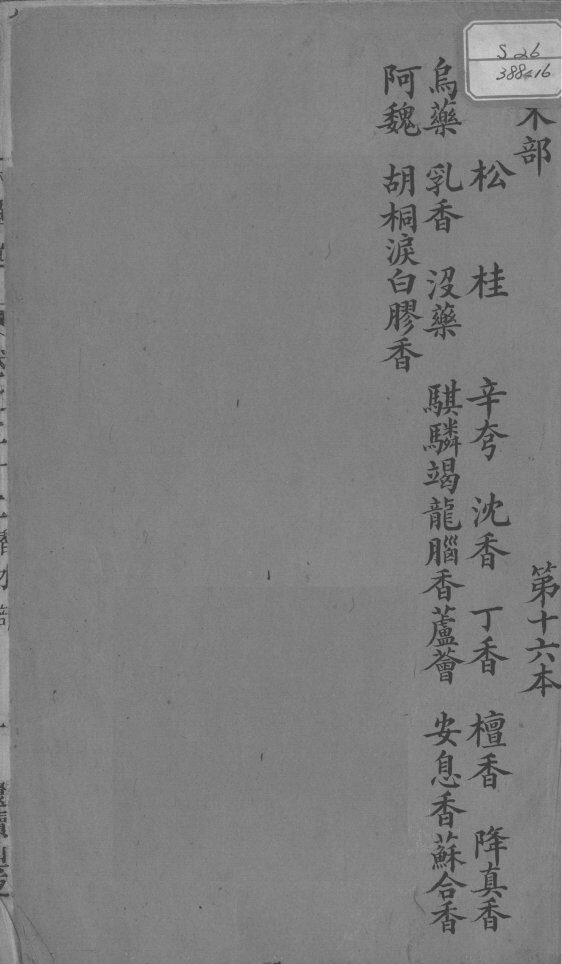 木部　第十六本
松　桂　辛夸　沈香　丁香　檀香　降真香
烏藥　乳香　没藥　騏驎竭　龍腦香　蘆薈　安息香　蘇合香
阿魏　胡桐淚　白膠香
S 26
388 v.16